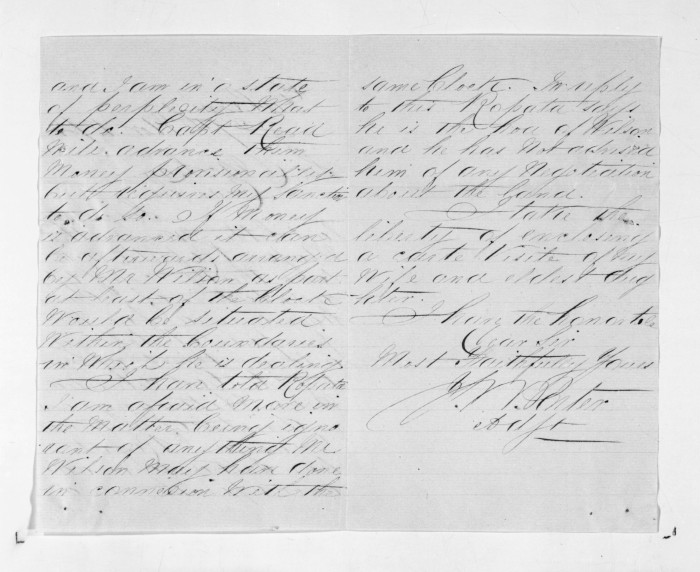 and I am in a state
of perplicity What
to do. Capt Read
Will advance them
Money
but requires my sanction
to do so. If Money
is advanced it can
be afterwards arranged
by Mr Wilson as part
at least of the block
Would be situated
Within the boundaries
in Which he is dealing
I have told Ropata
I am afraid Move in
the Matter being igno
rant of anything Mr
Wilson May have done
in connexion With the
same Block. In reply
to this Ropata says
he is the of Wilson
and he has not advised
him of any Negotiation
about the Land.
I take the
liberty of enclosing
a carte Visite of my
Wife and eldest daug
hter.
I have the honor to be
Dear Sir
Most Faithfully Yours
J. W. Porter
Adjt